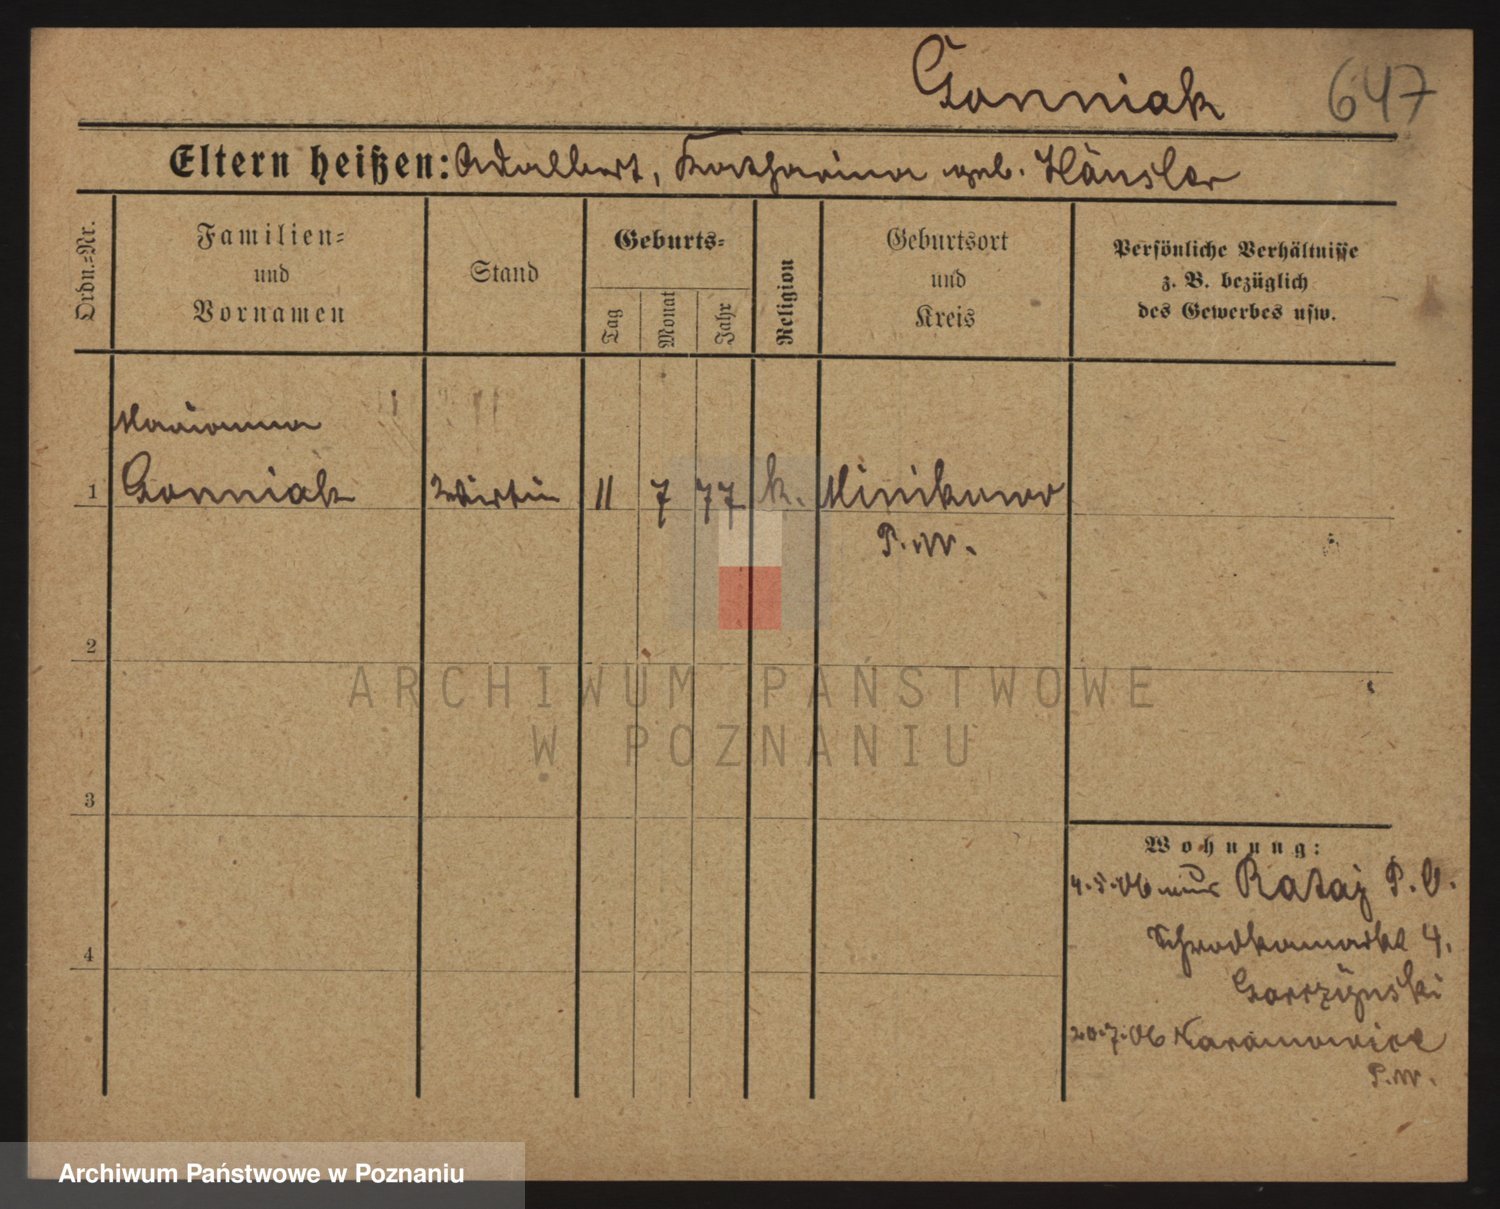 Gonniak 647
Eltern heißen: Adalbert, Katharina geb. Hänsler
Ordn.-Nr.
Familien-
und
Vornamen
Stand
Geburts-
Tag
Monat
Jahr
Religion
Geburtsort
und
Kreis
Persönliche Verhältnisse
z. B. bezüglich
des Gewerbes usw.
Marianna
1 Gonniak Wirtin 11 7 77 k. Minikowo
P. W.
2
ARCHIWUM PAŃSTWOWE
W POZNANIU
3
Wohnung:
4.5.06 aus Rataj P. O.
Schrodkamarkt 4.
4
Gorzynski
20.7.06
P. W.
Archiwum Państwowe w Poznaniu